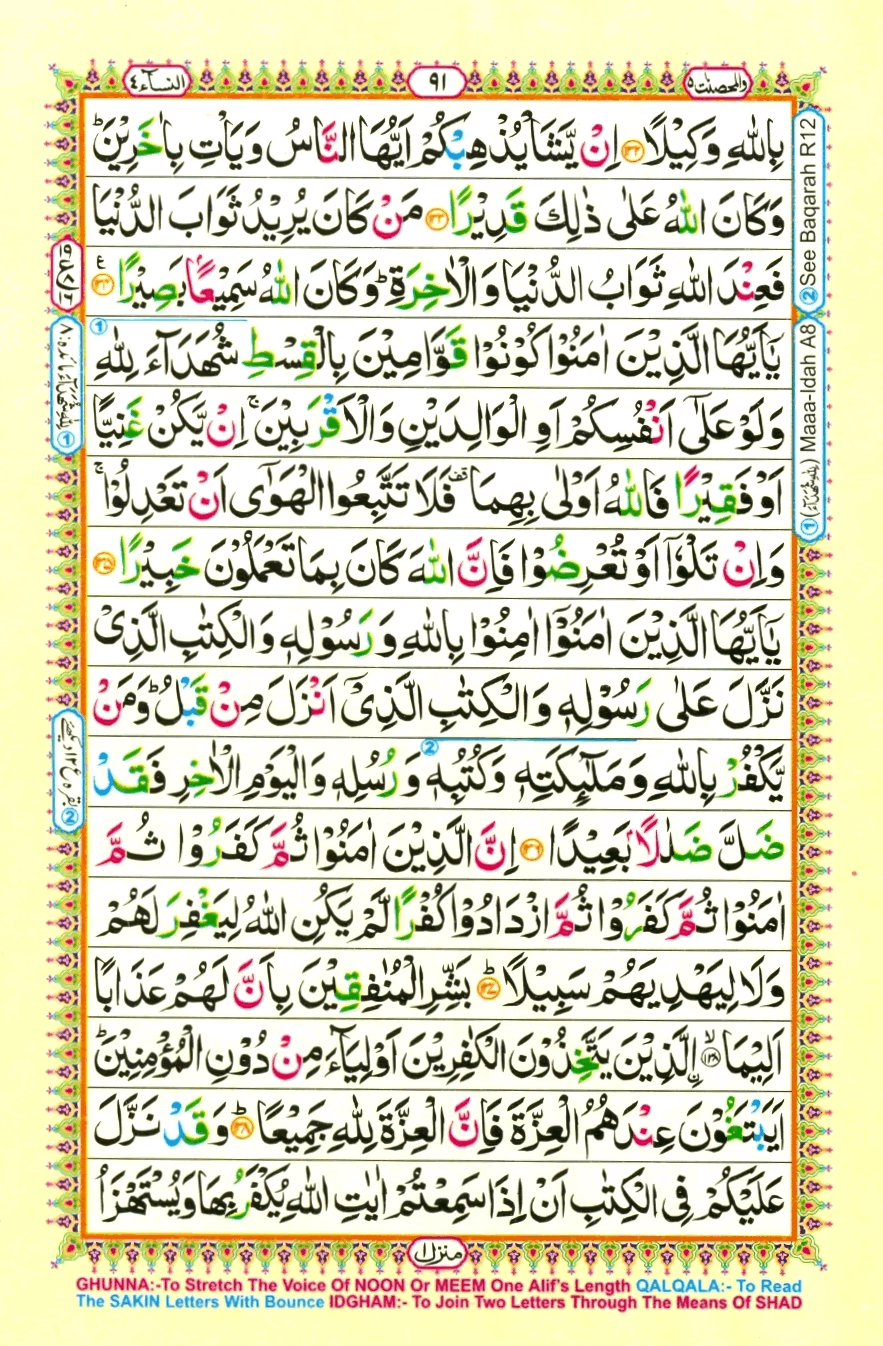 النسآء ٤
٩١
والمحصنت ٥
بِاللّٰهِ وَكِيْلًا ۝١٣٢ اِنْ يَّشَاْ يُذْهِبْكُمْ اَيُّهَا النَّاسُ وَيَاْتِ بِاٰخَرِيْنَ ؕ
وَكَانَ اللّٰهُ عَلٰى ذٰلِكَ قَدِيْرًا ۝١٣٣ مَنْ كَانَ يُرِيْدُ ثَوَابَ الدُّنْيَا
فَعِنْدَ اللّٰهِ ثَوَابُ الدُّنْيَا وَالْاٰخِرَةِ ؕ وَكَانَ اللّٰهُ سَمِيْعًۢا بَصِيْرًا ۝١٣٤
يٰۤاَيُّهَا الَّذِيْنَ اٰمَنُوْا كُوْنُوْا قَوَّامِيْنَ بِالْقِسْطِ شُهَدَآءَ لِلّٰهِ
وَلَوْ عَلٰۤى اَنْفُسِكُمْ اَوِ الْوَالِدَيْنِ وَالْاَقْرَبِيْنَ ۚ اِنْ يَّكُنْ غَنِيًّا
اَوْ فَقِيْرًا فَاللّٰهُ اَوْلٰى بِهِمَا ۫ فَلَا تَتَّبِعُوا الْهَوٰۤى اَنْ تَعْدِلُوْا ۚ
وَاِنْ تَلْوٗۤا اَوْ تُعْرِضُوْا فَاِنَّ اللّٰهَ كَانَ بِمَا تَعْمَلُوْنَ خَبِيْرًا ۝١٣٥
يٰۤاَيُّهَا الَّذِيْنَ اٰمَنُوْۤا اٰمِنُوْا بِاللّٰهِ وَرَسُوْلِهٖ وَالْكِتٰبِ الَّذِىْ
نَزَّلَ عَلٰى رَسُوْلِهٖ وَالْكِتٰبِ الَّذِىْۤ اَنْزَلَ مِنْ قَبْلُ ؕ وَمَنْ
يَّكْفُرْ بِاللّٰهِ وَمَلٰٓئِكَتِهٖ وَكُتُبِهٖ وَرُسُلِهٖ وَالْيَوْمِ الْاٰخِرِ فَقَدْ
ضَلَّ ضَلٰلًۢا بَعِيْدًا ۝١٣٦ اِنَّ الَّذِيْنَ اٰمَنُوْا ثُمَّ كَفَرُوْا ثُمَّ
اٰمَنُوْا ثُمَّ كَفَرُوْا ثُمَّ ازْدَادُوْا كُفْرًا لَّمْ يَكُنِ اللّٰهُ لِيَغْفِرَ لَهُمْ
وَلَا لِيَهْدِيَهُمْ سَبِيْلًا ۝١٣٧ؕ بَشِّرِ الْمُنٰفِقِيْنَ بِاَنَّ لَهُمْ عَذَابًا
اَلِيْمَا ۝١٣٨ۙ اۨلَّذِيْنَ يَتَّخِذُوْنَ الْكٰفِرِيْنَ اَوْلِيَآءَ مِنْ دُوْنِ الْمُؤْمِنِيْنَ ؕ
اَيَبْتَغُوْنَ عِنْدَهُمُ الْعِزَّةَ فَاِنَّ الْعِزَّةَ لِلّٰهِ جَمِيْعًا ۝ؕ وَقَدْ نَزَّلَ
عَلَيْكُمْ فِى الْكِتٰبِ اَنْ اِذَا سَمِعْتُمْ اٰيٰتِ اللّٰهِ يُكْفَرُ بِهَا وَيُسْتَهْزَاُ
② See Baqarah R12
① (للہ شہدآء) Maaa-Idah A8
منزل ١
GHUNNA:-To Stretch The Voice Of NOON Or MEEM One Alif's Length QALQALA:- To Read
The SAKIN Letters With Bounce IDGHAM:- To Join Two Letters Through The Means Of SHAD